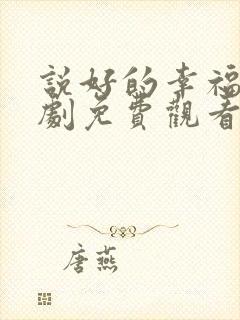 說好的幸福
劇免費觀看
唐燕